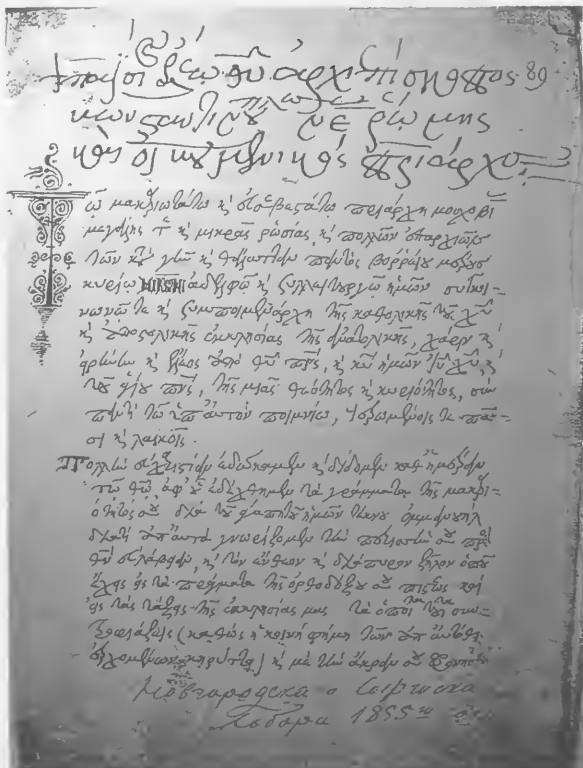 Παΐσιος ἐλέῳ θῦ ἀρχιεπίσκοπος 89
κωνσταντινουπόλεως νέας ῥώμης
καὶ οἰκουμενικὸς πριάρχης
Τῷ μακαριωτάτῳ κ εὐσεβεστάτῳ πριάρχῃ μοσχοβί
μεγάλης τε κ μικρᾶς ῥωσίας, κ πολλῶν ἐπαρχιῶν
τῶν κατὰ γῆν κ θάλασσαν παντὸς βορείου μέρους
κυρίῳ ΝΙΚΩΝΙ ἀδελφῷ κ συλλειτουργῷ ἡμῶν συγκοι=
νωνῷ τε κ συμποιμενάρχῃ τῆς καθολικῆς τοῦ χῦ
κ ἀποστολικῆς ἐκκλησίας τῆς ἀνατολικῆς, χάριν κ
εἰρήνην κ ἔλεος ἀπὸ θῦ πρς, κ κυ ἡμῶν ιυ χυ, κ
τοῦ ἁγίου πνς, τῆς μιᾶς θεότητος κ κυριότητος, σὺν
παντὶ τῷ ὑπ' αὐτὸν ποιμνίῳ, ἱερωμένοις τε πᾶ=
σι κ λαϊκοῖς.
Πολλὴν εὐχαριστίαν ἐδώκαμεν κ δίδομεν καθ' ἡμέραν
τῷ θῷ ἀφ' οὗ ἐδέχθημεν τὰ γράμματα τῆς μακαρι=
ότητός σου διὰ τοῦ ἀγαπητοῦ ἡμῶν τέκνου ἐμμανουήλ
διατὶ ἀπ' αὐτὰ γνωρίζομεν τὴν πολλὴν σου πρὸς
θν εὐλάβειαν, κ τὸν ἔνθεον κ διάπυρον ζῆλον ὁποῦ
ἔχεις εἰς τὰ πράγματα τῆς ὀρθοδόξου σου πίστεως καὶ
εἰς τὰς τάξεις τῆς ἐκκλησίας μας
(καθὼς ἡ κοινὴ φήμη τῶν ἀπ' αὐτόθι
ἐρχομένων κηρύττει) κ μὲ τὴν ἄκραν σου φρόνησιν
Новгородска о Софийска
Собора 1855